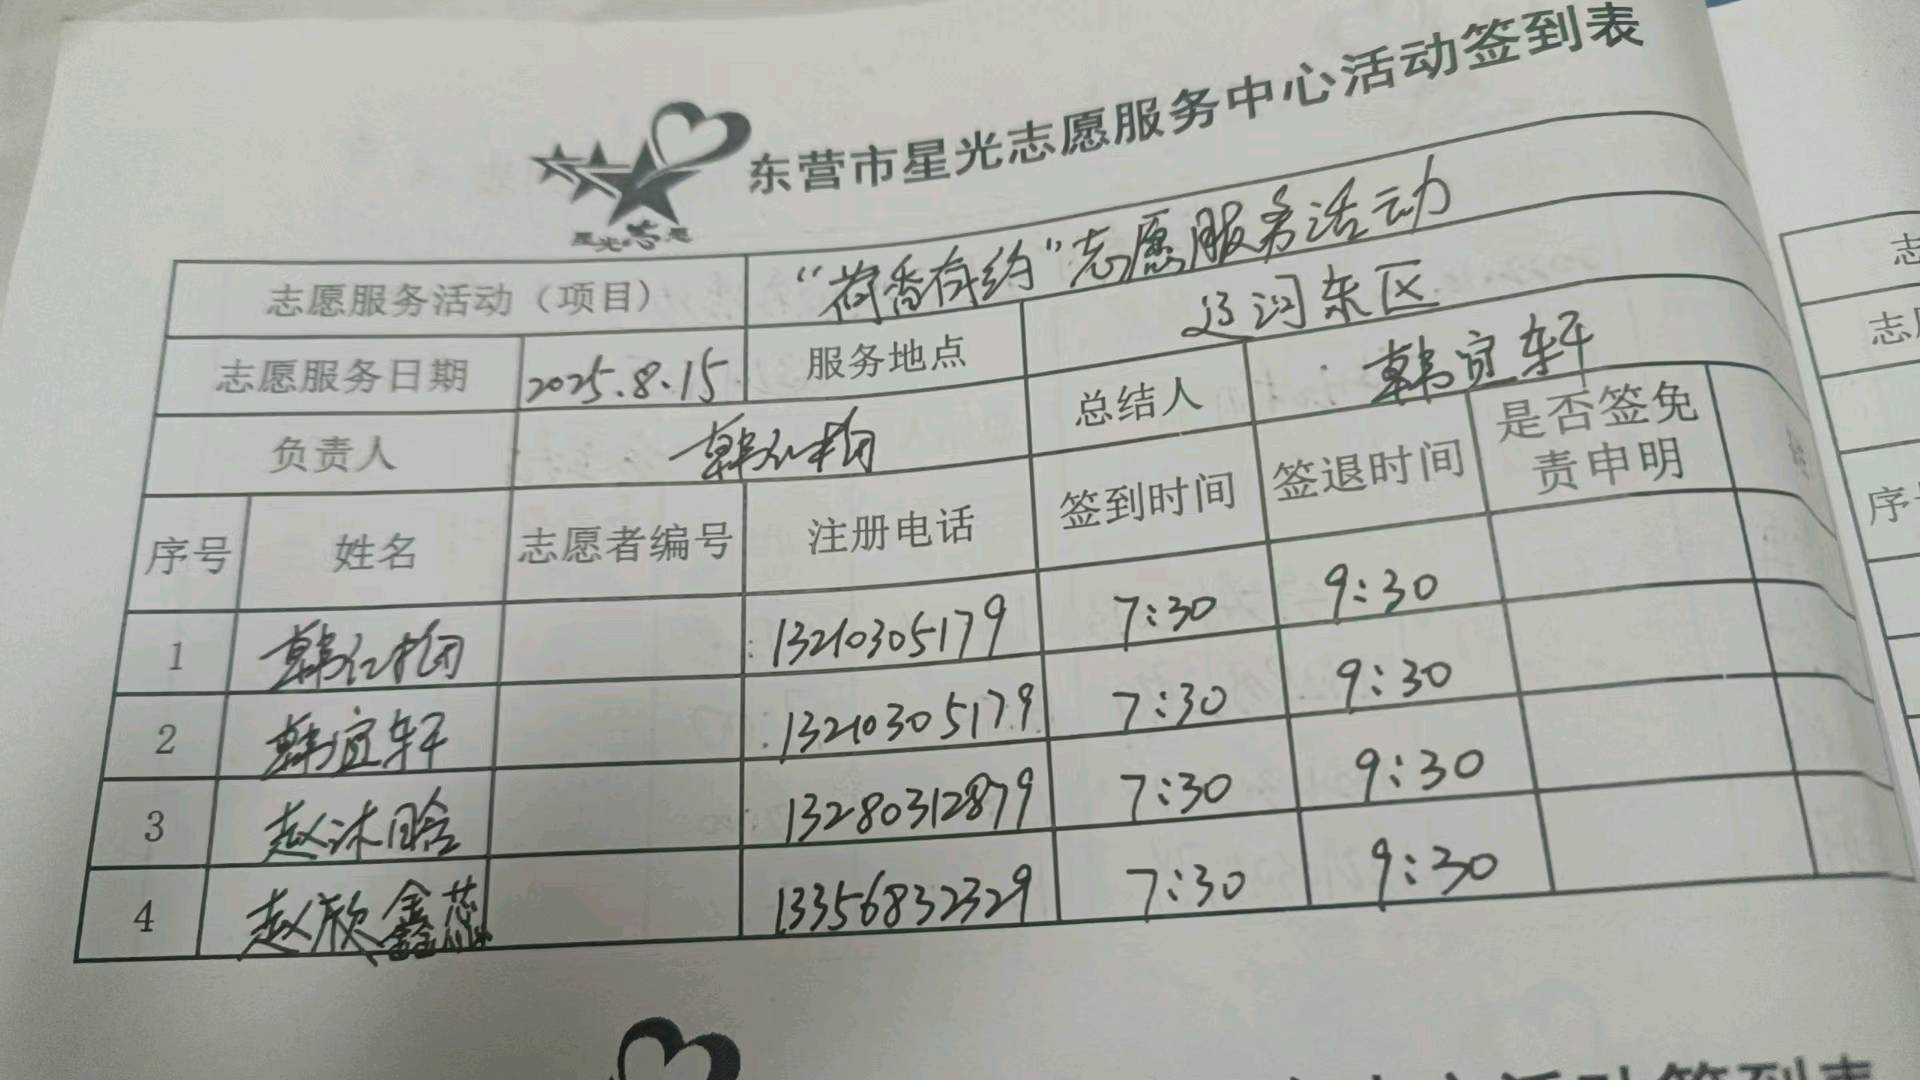 东营市星光志愿服务中心活动签到表
星光志愿
志愿服务活动（项目） “荷香有约”志愿服务活动
志愿服务日期 2025.8.15 服务地点 辽河东区
负责人 韩红梅 总结人 韩宜轩
序号 姓名 志愿者编号 注册电话 签到时间 签退时间 是否签免责申明
1 韩红梅 13210305179 7:30 9:30
2 韩宜轩 13210305179 7:30 9:30
3 赵沐晗 13280312879 7:30 9:30
4 赵欣鑫蕊 13356832329 7:30 9:30
志
志愿
序号
活动签到表